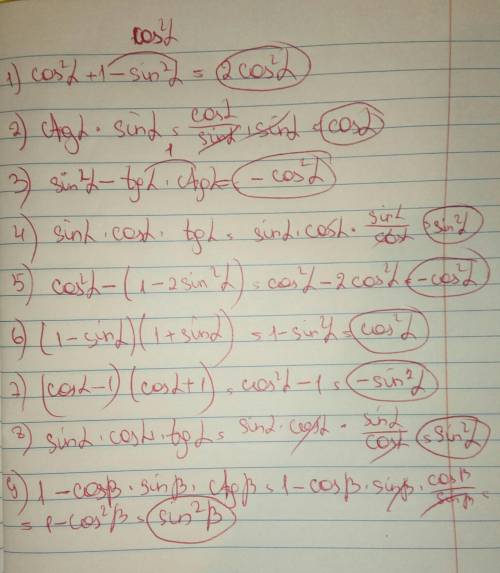 cos²α
1) cos²α + 1 - sin²α = 2cos²α
2) ctgα · sinα = cosα/sinα · sinα = cosα
1
3) sin²α - tgα · ctgα = - cos²α
4) sinα · cosα · tgα = sinα · cosα · sinα/cosα = sin²α
5) cos²α - (1 - 2sin²α) = cos²α - 2cos²α = -cos²α
6) (1 - sinα)(1 + sinα) = 1 - sin²α = cos²α
7) (cosα - 1)(cosα + 1) = cos²α - 1 = -sin²α
8) sinα · cosα · tgα = sinα · cosα · sinα/cosα = sin²α
9) 1 - cosβ · sinβ · ctgβ = 1 - cosβ · sinβ · cosβ/sinβ =
= 1 - cos²β = sin²β